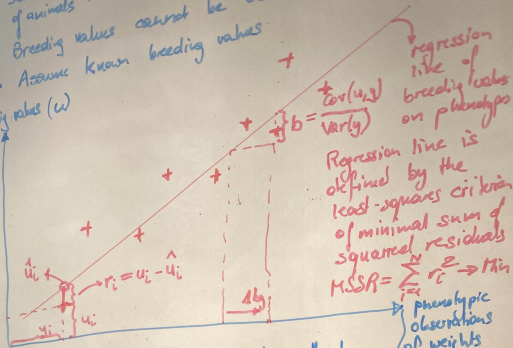 of animals
Breeding values cannot be
Assume known breeding values
values (u)
regression
line of
breeding values
on phenotype
b = cov(u,y)
var(y)
Regression line is
defined by the
least-squares criterion
of minimal sum of
squared residuals
MSSR = Σ r_i^2 → Min
i=1 N
û_i
r_i = u_i - û_i
u_i
y_i
1kg
phenotypic
observations
of weights